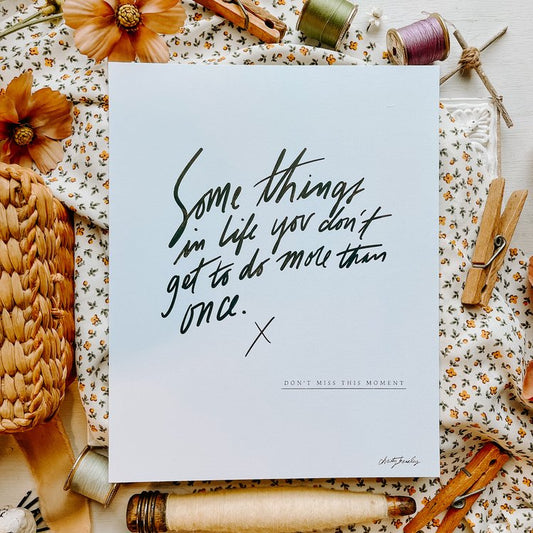 Some things
in life you don't
get to do more than
once.
X
DON'T MISS THIS MOMENT